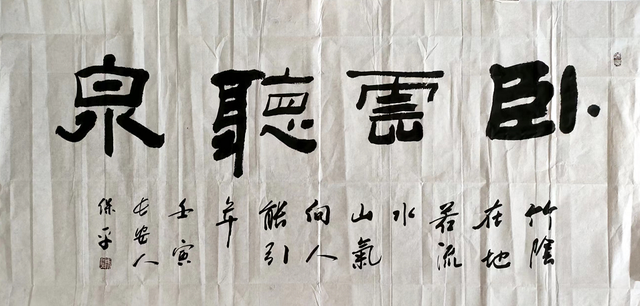 卧雲聽泉
竹陰
在地
若流
水
山氣
向人
能引
年
壬寅
長安人
保平